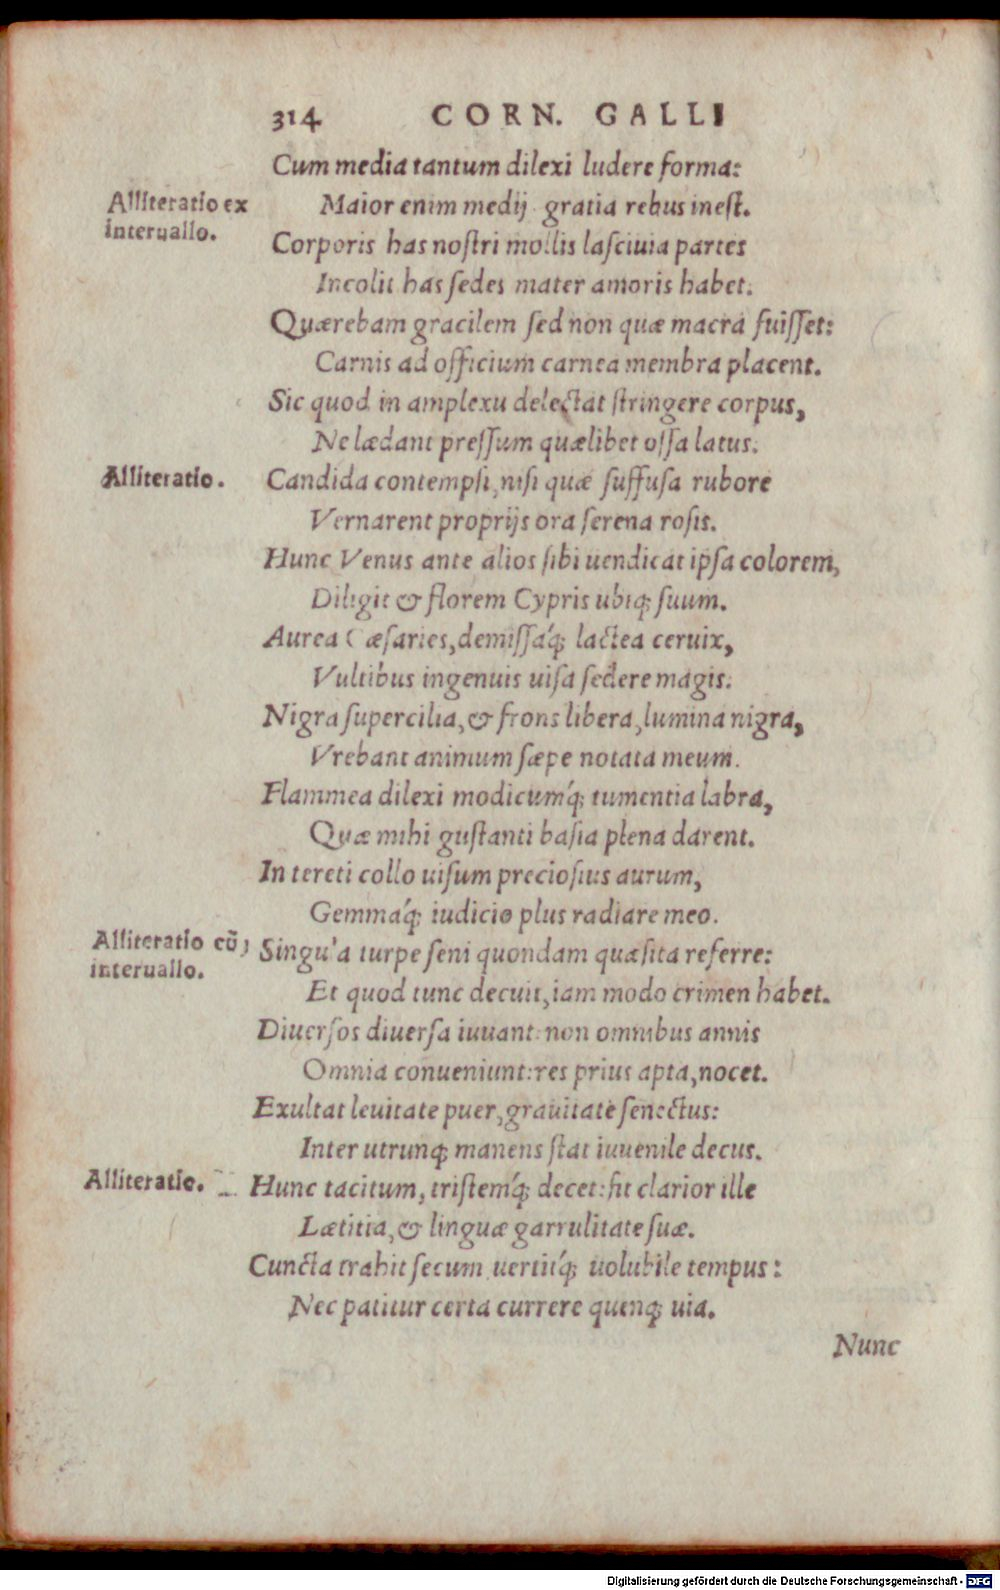 314 CORN. GALLI
Cum media tantum dilexi ludere forma:
Alliteratio ex
Maior enim medij gratia rebus inest.
interuallo.
Corporis has nostri mollis lasciuia partes
Incolit has sedes mater amoris habet.
Quærebam gracilem sed non quæ macra fuisset:
Carnis ad officium carnea membra placent.
Sic quod in amplexu delectat stringere corpus,
Ne lædant pressum quælibet ossa latus.
Alliteratio.
Candida contempsi, nisi quæ suffusa rubore
Vernarent proprijs ora serena rosis.
Hunc Venus ante alios sibi uendicat ipsa colorem,
Diligit & florem Cypris ubiq; suum.
Aurea Cæsaries, demissáq; lactea ceruix,
Vultibus ingenuis uisa sedere magis.
Nigra supercilia, & frons libera, lumina nigra,
Vrebant animum sæpe notata meum.
Flammea dilexi modicumq́; tumentia labra,
Quæ mihi gustanti basia plena darent.
In tereti collo uisum preciosius aurum,
Gemmáq; iudicio plus radiare meo.
Alliteratio cũ
interuallo.
Singula turpe seni quondam quæsita referre:
Et quod tunc decuit, iam modo crimen habet.
Diuersos diuersa iuuant: non omnibus annis
Omnia conueniunt: res prius apta, nocet.
Exultat leuitate puer, grauitate senectus:
Inter utrunq; manens stat iuuenile decus.
Alliteratio.
Hunc tacitum, tristemq́; decet: fit clarior ille
Lætitia, & linguæ garrulitate suæ.
Cuncta trahit secum uertitq́; uolubile tempus:
Nec patitur certa currere quenq; uia.
Nunc
Digitalisierung gefördert durch die Deutsche Forschungsgemeinschaft - DFG